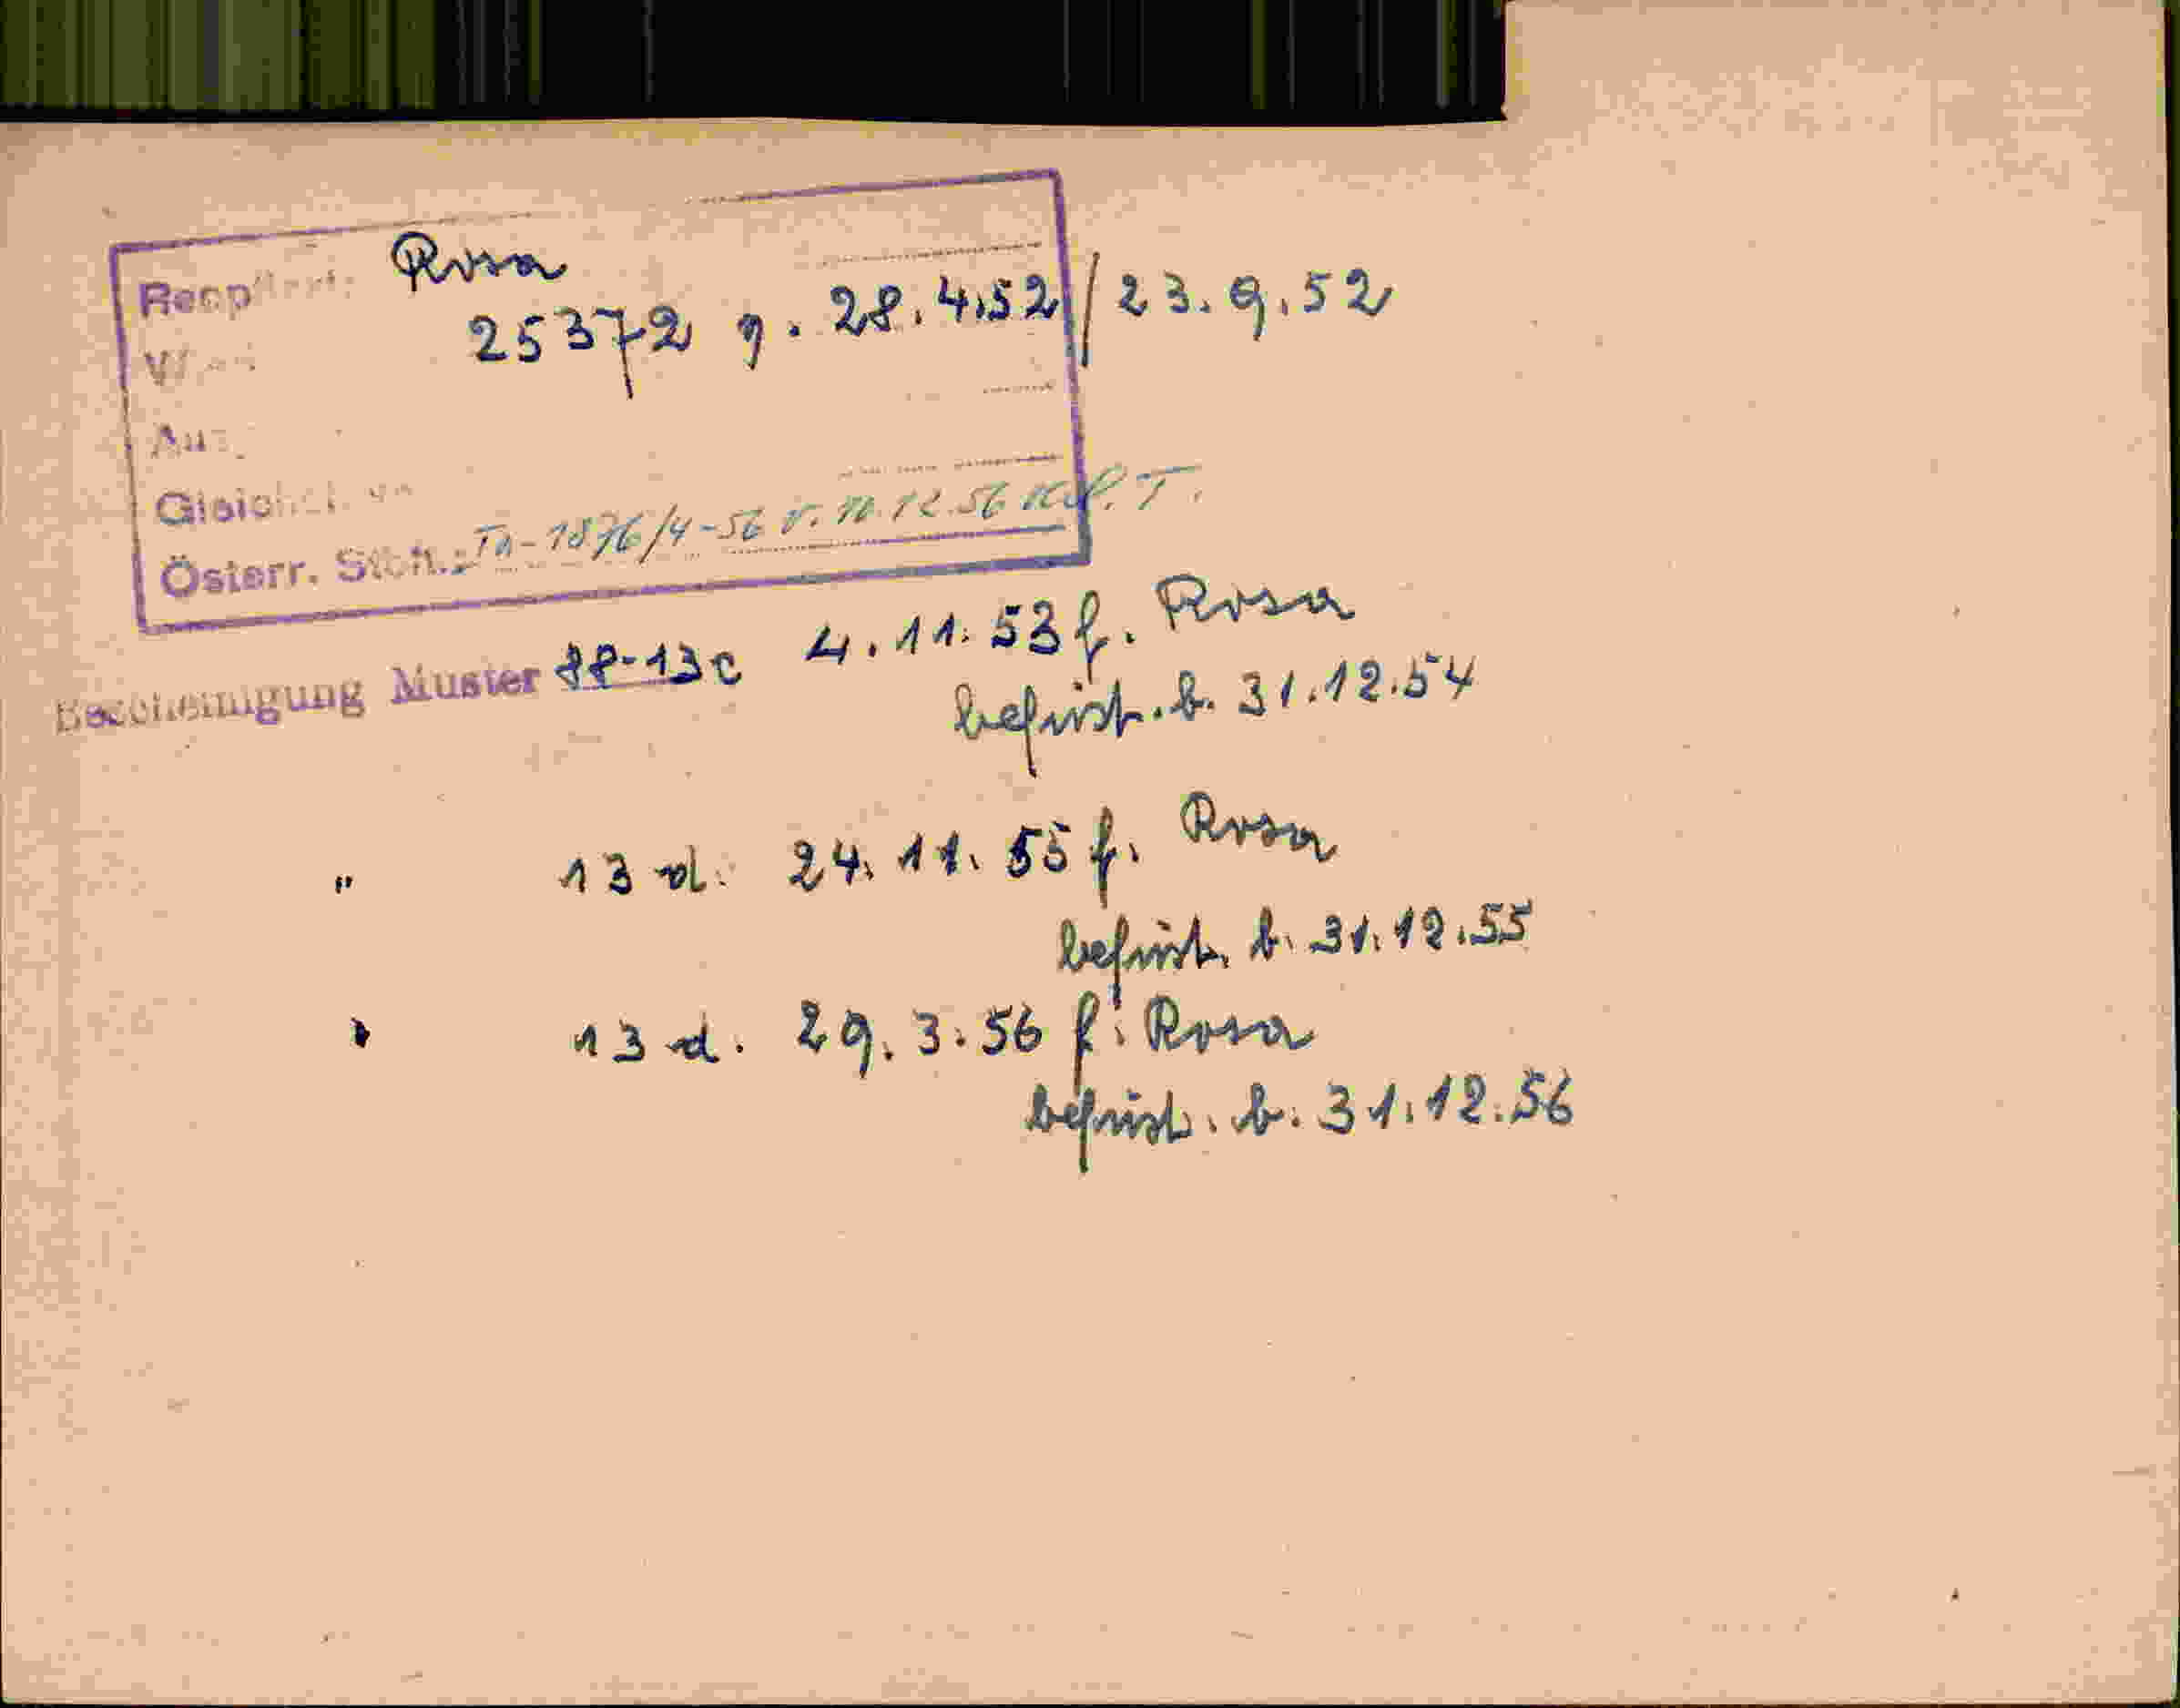 Rosa
25372 g. 28.4.52 / 23.9.52
Österr. Stbft.: Ia-1876/4-56 v. 10.12.56
Bescheinigung Muster 88-13c 4.11.53 f. Rosa
befrist. b. 31.12.54
" 13 d. 24.11.55 f. Rosa
befrist. b. 31.12.55
" 13 d. 29.3.56 f. Rosa
befrist. b. 31.12.56